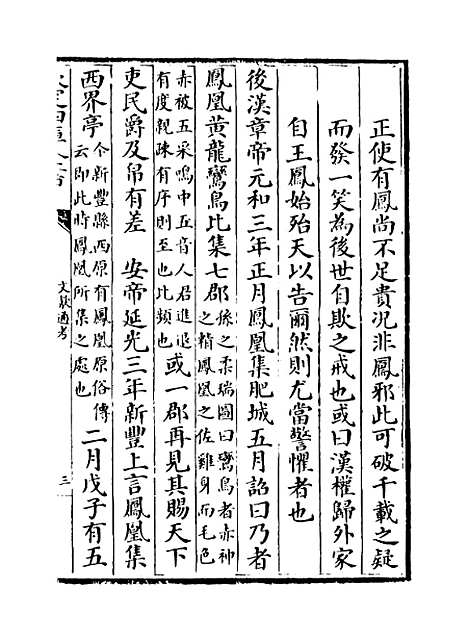 正使有鳳尚不足貴况非鳳邪此可破千載之疑
而發一笑為後世自欺之戒也或曰漢權歸外家
自王鳳始殆天以告爾然則尤當警懼者也
後漢章帝元和三年正月鳳凰集肥城五月詔曰乃者
鳳凰黄龍鸞鳥比集七郡孫之柔瑞圖曰鸞鳥者赤神之精鳳凰之佐雞身而毛色
赤被五采鳴中五音人君進退有度親疎有序則至也比類也或一郡再見其賜天下
吏民爵及帛有差　安帝延光三年新豐上言鳳凰集
西界亭今新豐縣西原有鳳凰原俗傳云即此時鳳凰所集之處也二月戊子有五
文獻通考
三